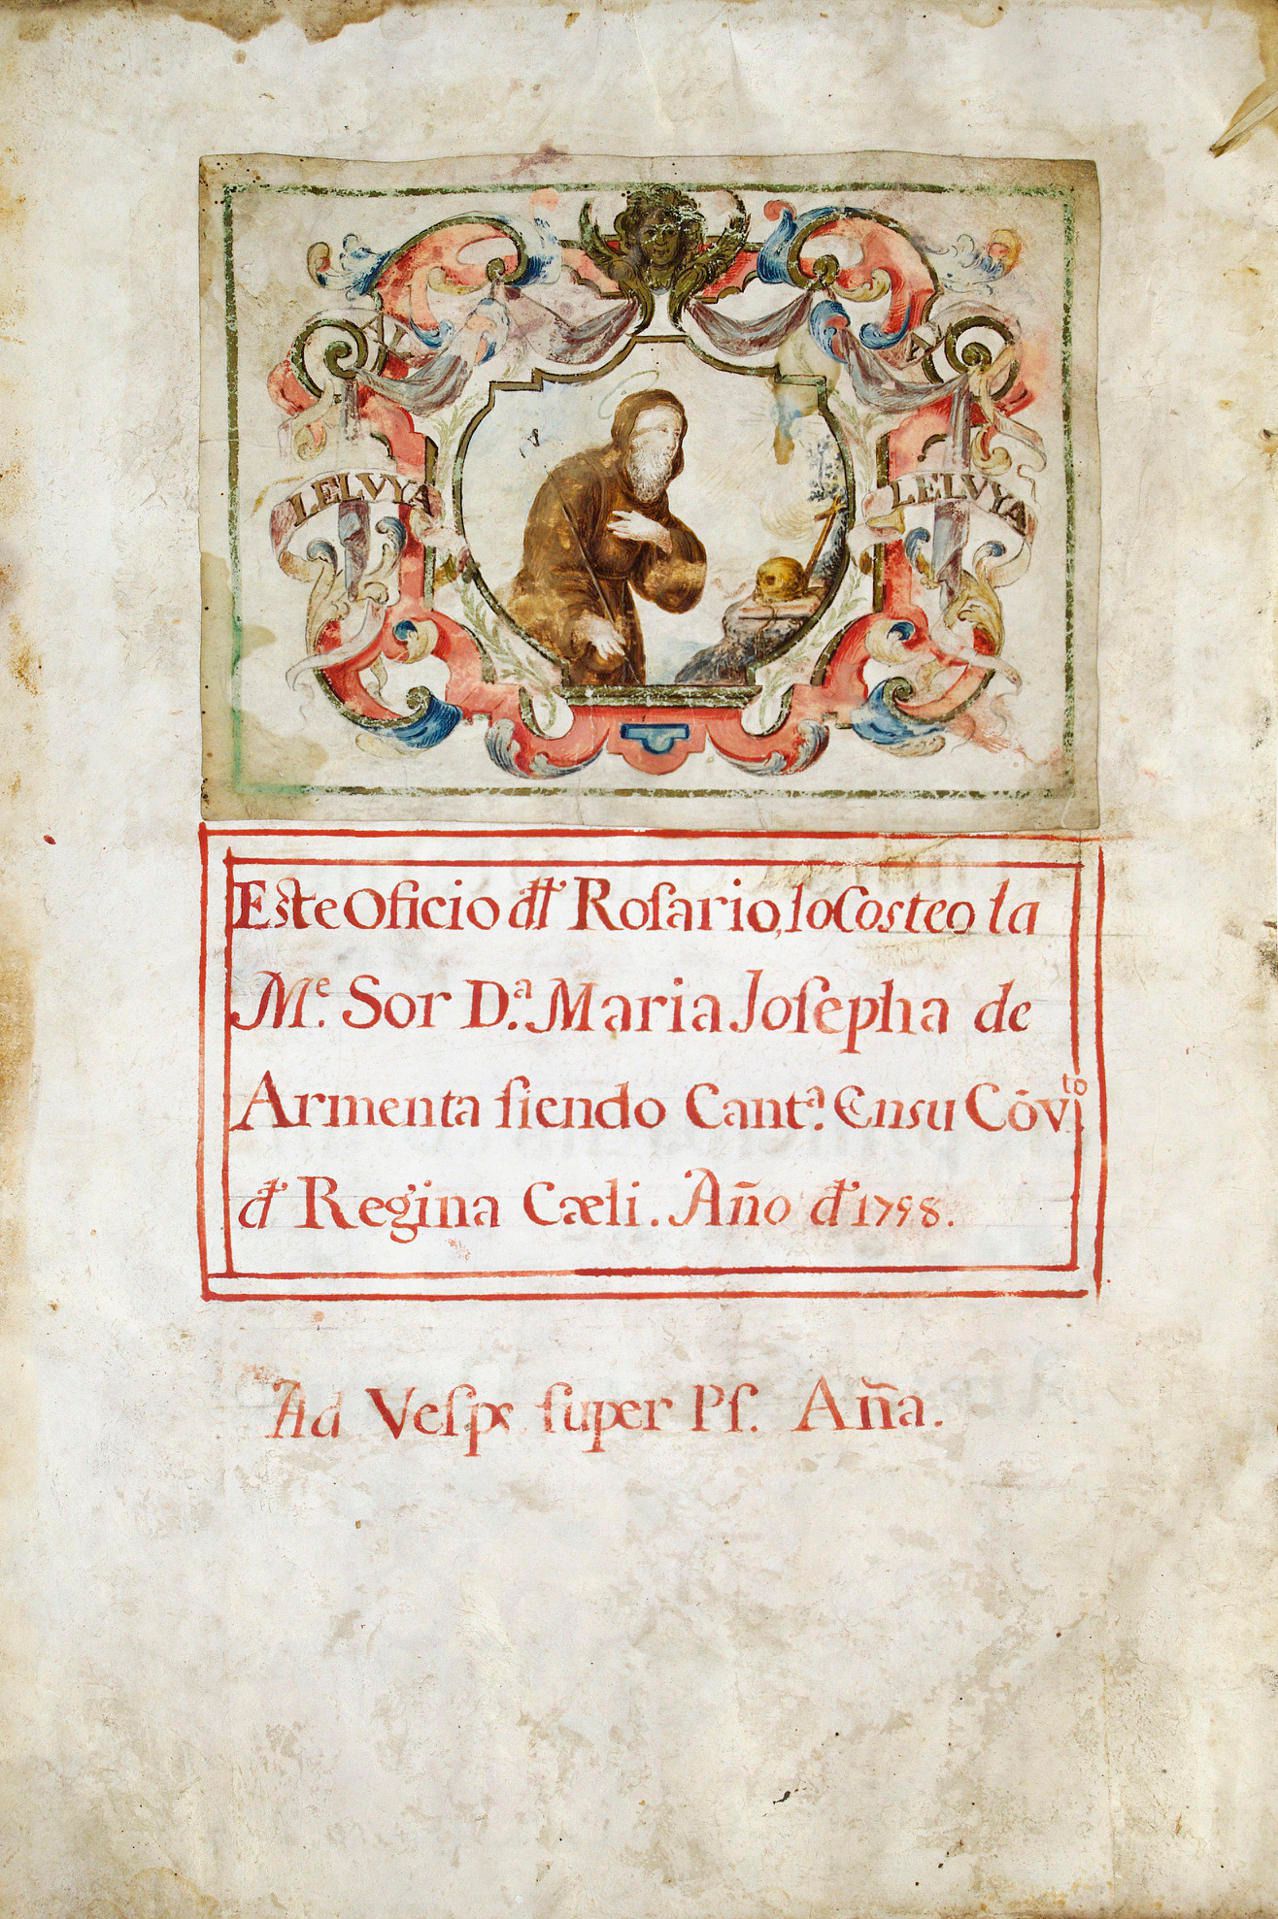 A A
LELVYA LELVYA
Este Oficio đl Roſario, lo Costeo la
Mᵉ. Sor D.ª Maria Joſepha de
Armenta ſiendo Cant.ª Ensu Cōv.ᵗᵒ
đ Regina Cæli. Año đ 1798.
Ad Veſpe ſuper Pſ. Aña.